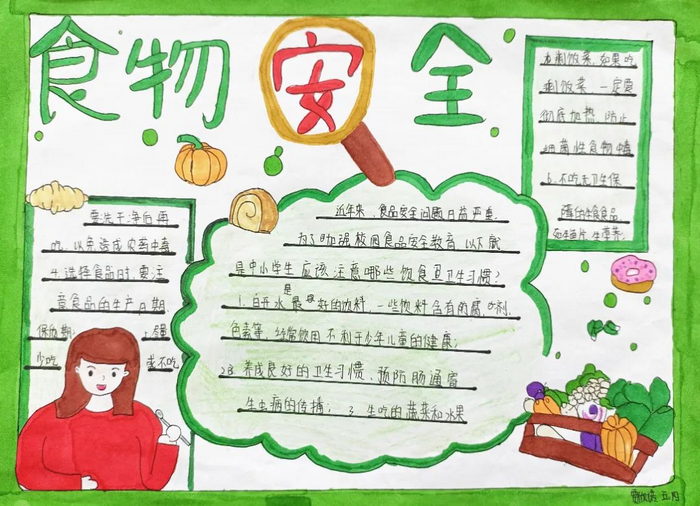 食物安全
近年来、食品安全问题日益严重.
为了加强校园食品安全教育 以下就
是中小学生应该注意哪些饮食卫卫生习惯?
1.白开水 是最好的饮料,一些饮料含有防腐剂.
色素等、经常饮用 不利于少年儿童的健康;
2 养成良好的卫生习惯、预防肠道寄
生虫病的传播; 3、生吃的蔬菜和水果
要洗干净后再
吃、以免造成农药中毒
4.选择食品时,要注
意食品的生产日期
保质期;
少吃 或不吃
剩饭菜.如果吃
剩饭菜 一定要
彻底加热、防止
细菌性食物中毒
6.不吃无卫生保
障的生食食品
如生鱼片 生荸荠.
五、四